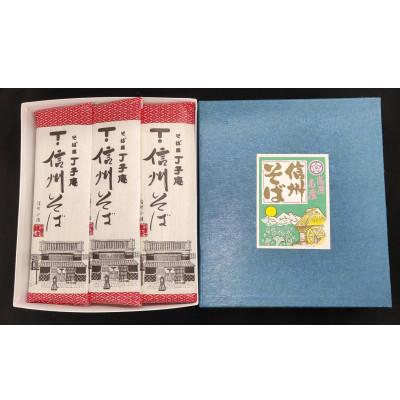 そば処 丁子庵
信州そば
そば処 丁子庵
信州そば
そば処 丁子庵
信州そば
信州
そば